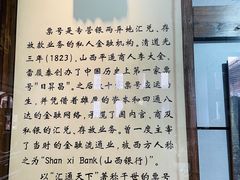 票号是专营银两异地汇兑、存
放款业务的私人金融机构。清道光
三年(1823)，山西平遥商人李大全、
雷履泰创办了中国历史上第一家票
号"日昇昌"。之后
票号
，并凭借着雄厚的资本和四通八
达的金融网络，
国内官、商及
私银的汇兑、存放业务。曾一度主宰
了当时的金融流通业，被西方人称
之为"Shan xi Bank(山西银行)"。
以"汇通天下"著称于世的票号